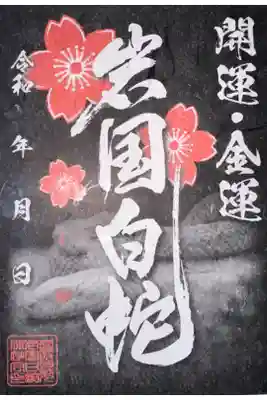 開運・金運
岩国白蛇
令和 年 月 日